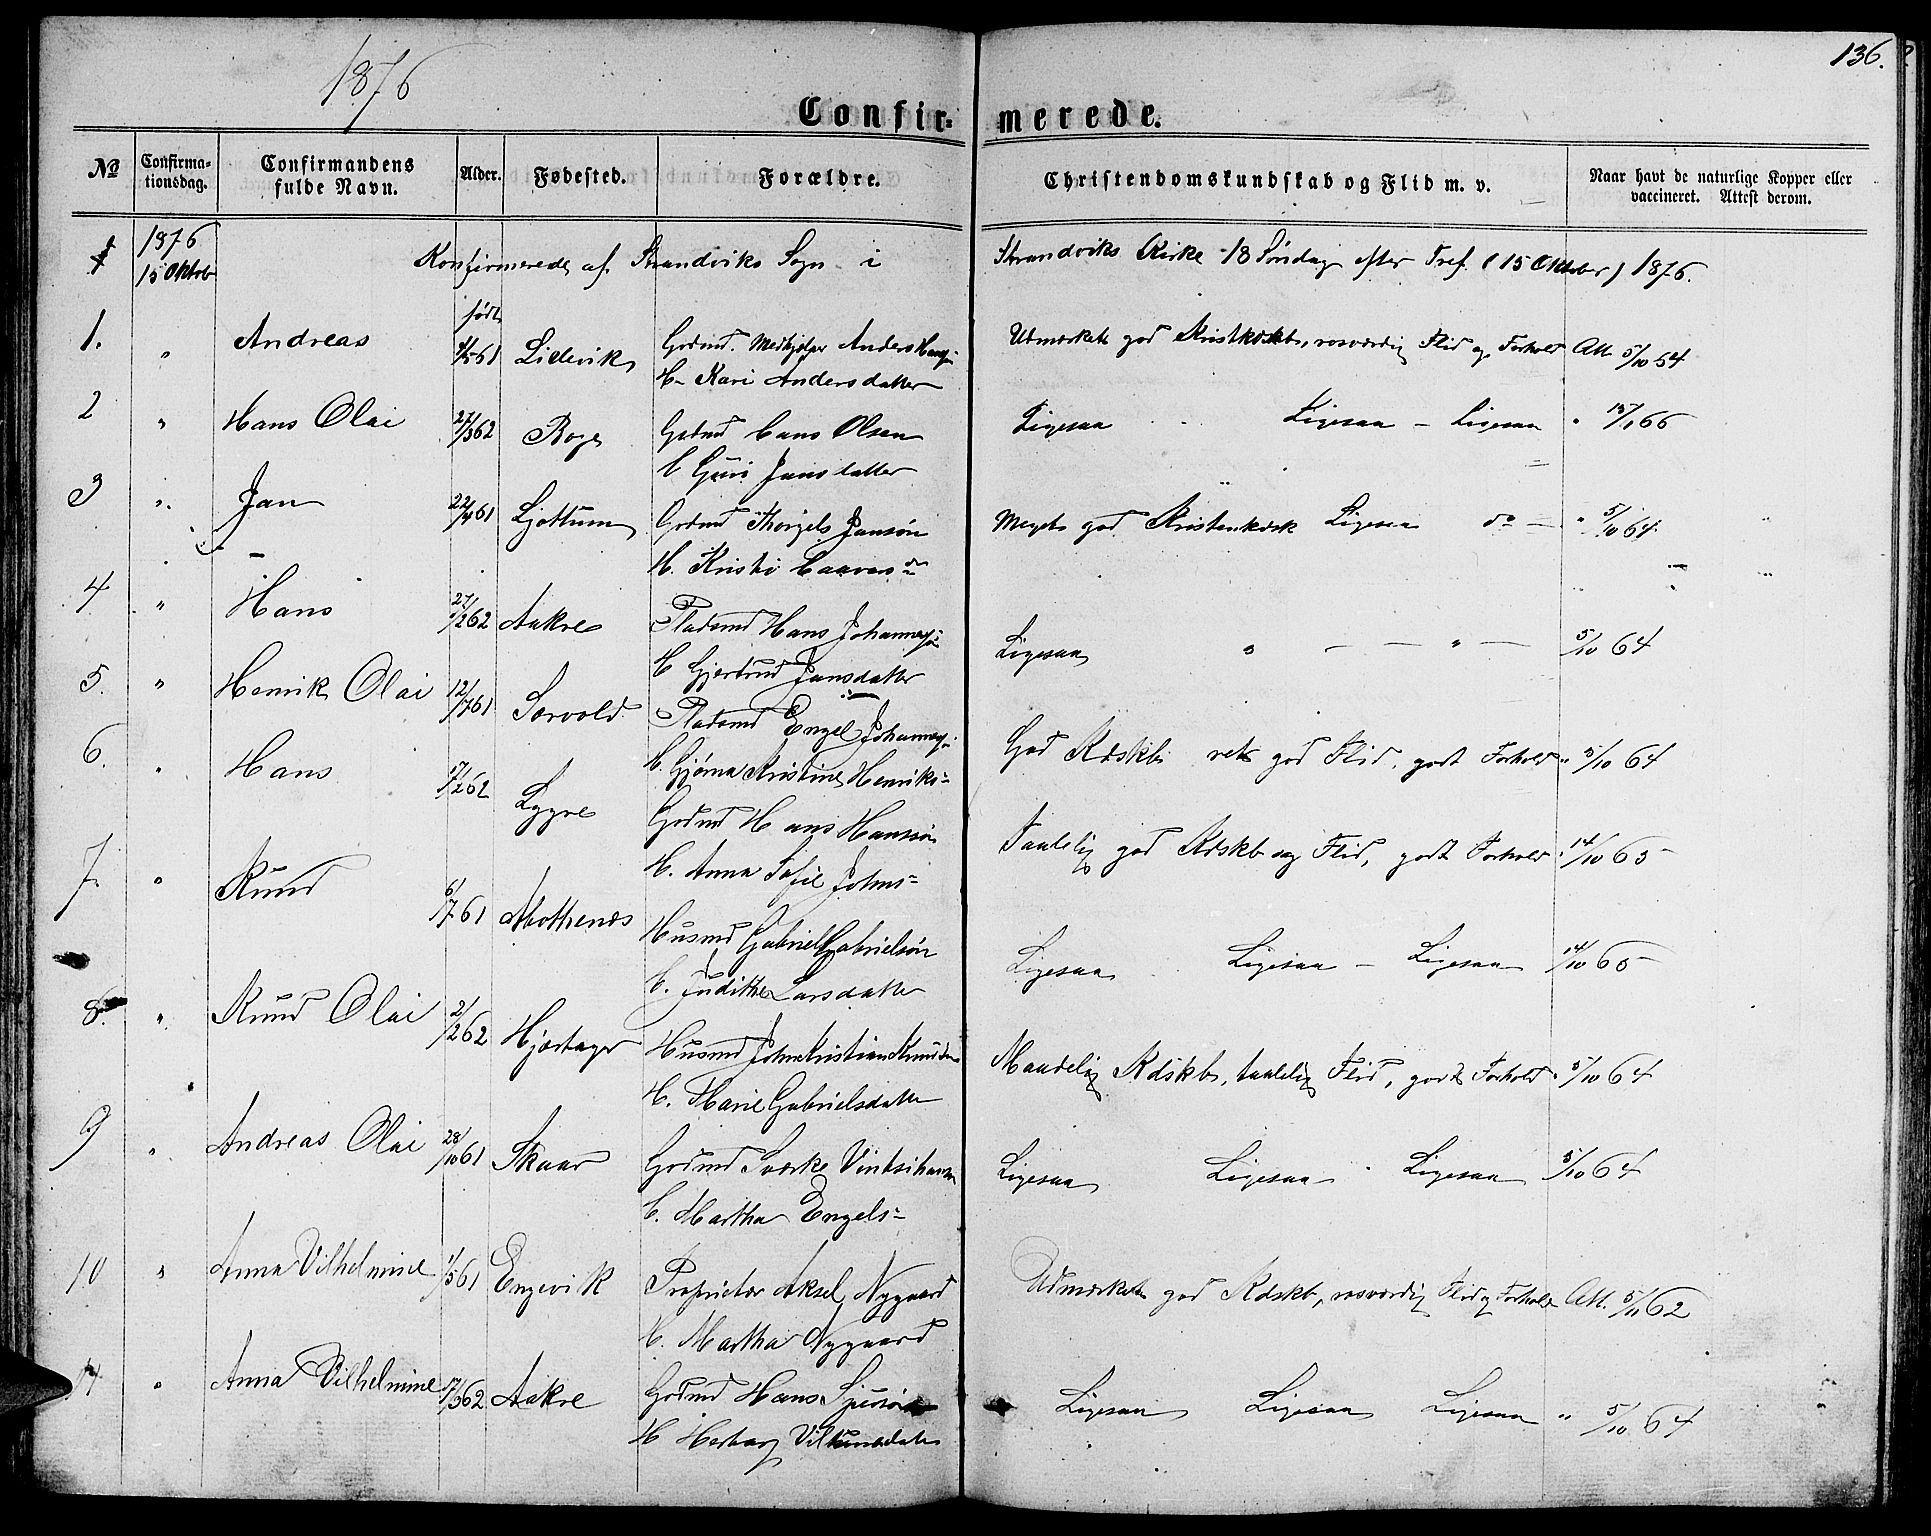 1876
136.
Confirmerede.
No
Confirmationsdag.
Confirmandens fulde Navn.
Alder.
Fødested.
Forældre.
Christendomskundskab og Flid m. v.
Naar havt de naturlige Kopper eller vaccineret. Attest derom.
1876
15 Oktob
Konfirmerede af Strandviks Sogn i Strandviks Kirke 18 Søndag efter Tref. (15 Oktober) 1876.
født
1. " Andreas 4/5 61 Lidevik Gdmd. Medhjelper Anders Hans Udmærket god Kristkdskb, rosværdig Flid og Forhold Att. 5/10 54
H. Kari Andersdatter
2 " Hans Olai 27/3 62 Boge Gdmd Hans Olsen Ligesaa Ligesaa - Ligesaa " 15/1 66
H Guri Jansdatter
3 " Jan 22/4 61 Ljottum Gdmd Thorgels Jansøn Meget god Kristenkdsk Ligesaa do - " 5/10 64
H. Kristi
4 " Hans 27/2 62 Aakre Pladsmd Hans Johannes Ligesaa " - - " - 5/10 64
H Gjertrud Jansdatter
5. " Henrik Olai 12/7 61 Sørvold Pladsmd Engel Johannes God Kdskb ret god Flid, godt Forhold " 5/10 64
H. Kristine Henriks=
6. " Hans 17/2 62 Lygre Gdmd Hans Hanssøn Taalelig god Kdskb og Flid, godt Forhold 14/10 65
H. Anna Sofie Johns=
7. " Knud 6/7 61 Husmd Gabriel Gabrielsøn Ligesaa Ligesaa - Ligesaa 14/10 65
H. Judithe Larsdatter
8. " Knud Olai 2/2 62 Hjertager Husmd John Kristian Knudsen Maadelig Kdskb, taalelig Flid, godt Forhold " 5/10 64
H. Marie Gabrielsdatter
9 " Andreas Olai 28/10 61 Skaar Gdmd Sverke Ligesaa Ligesaa " Ligesaa 5/10 64
H. Martha Engels=
10 " Anna Vilhelmine 1/5 61 Engevik Proprietær Aksel Nygaard Udmærket god Kdskb, rosværdig Flid og Forhold Att. 5/11 62
H. Martha Nygaard
11 " Anna Vilhelmine 17/3 62 Aakre Gdmd Hans Ligesaa Ligesaa Ligesaa " 5/10 64
H Herborg